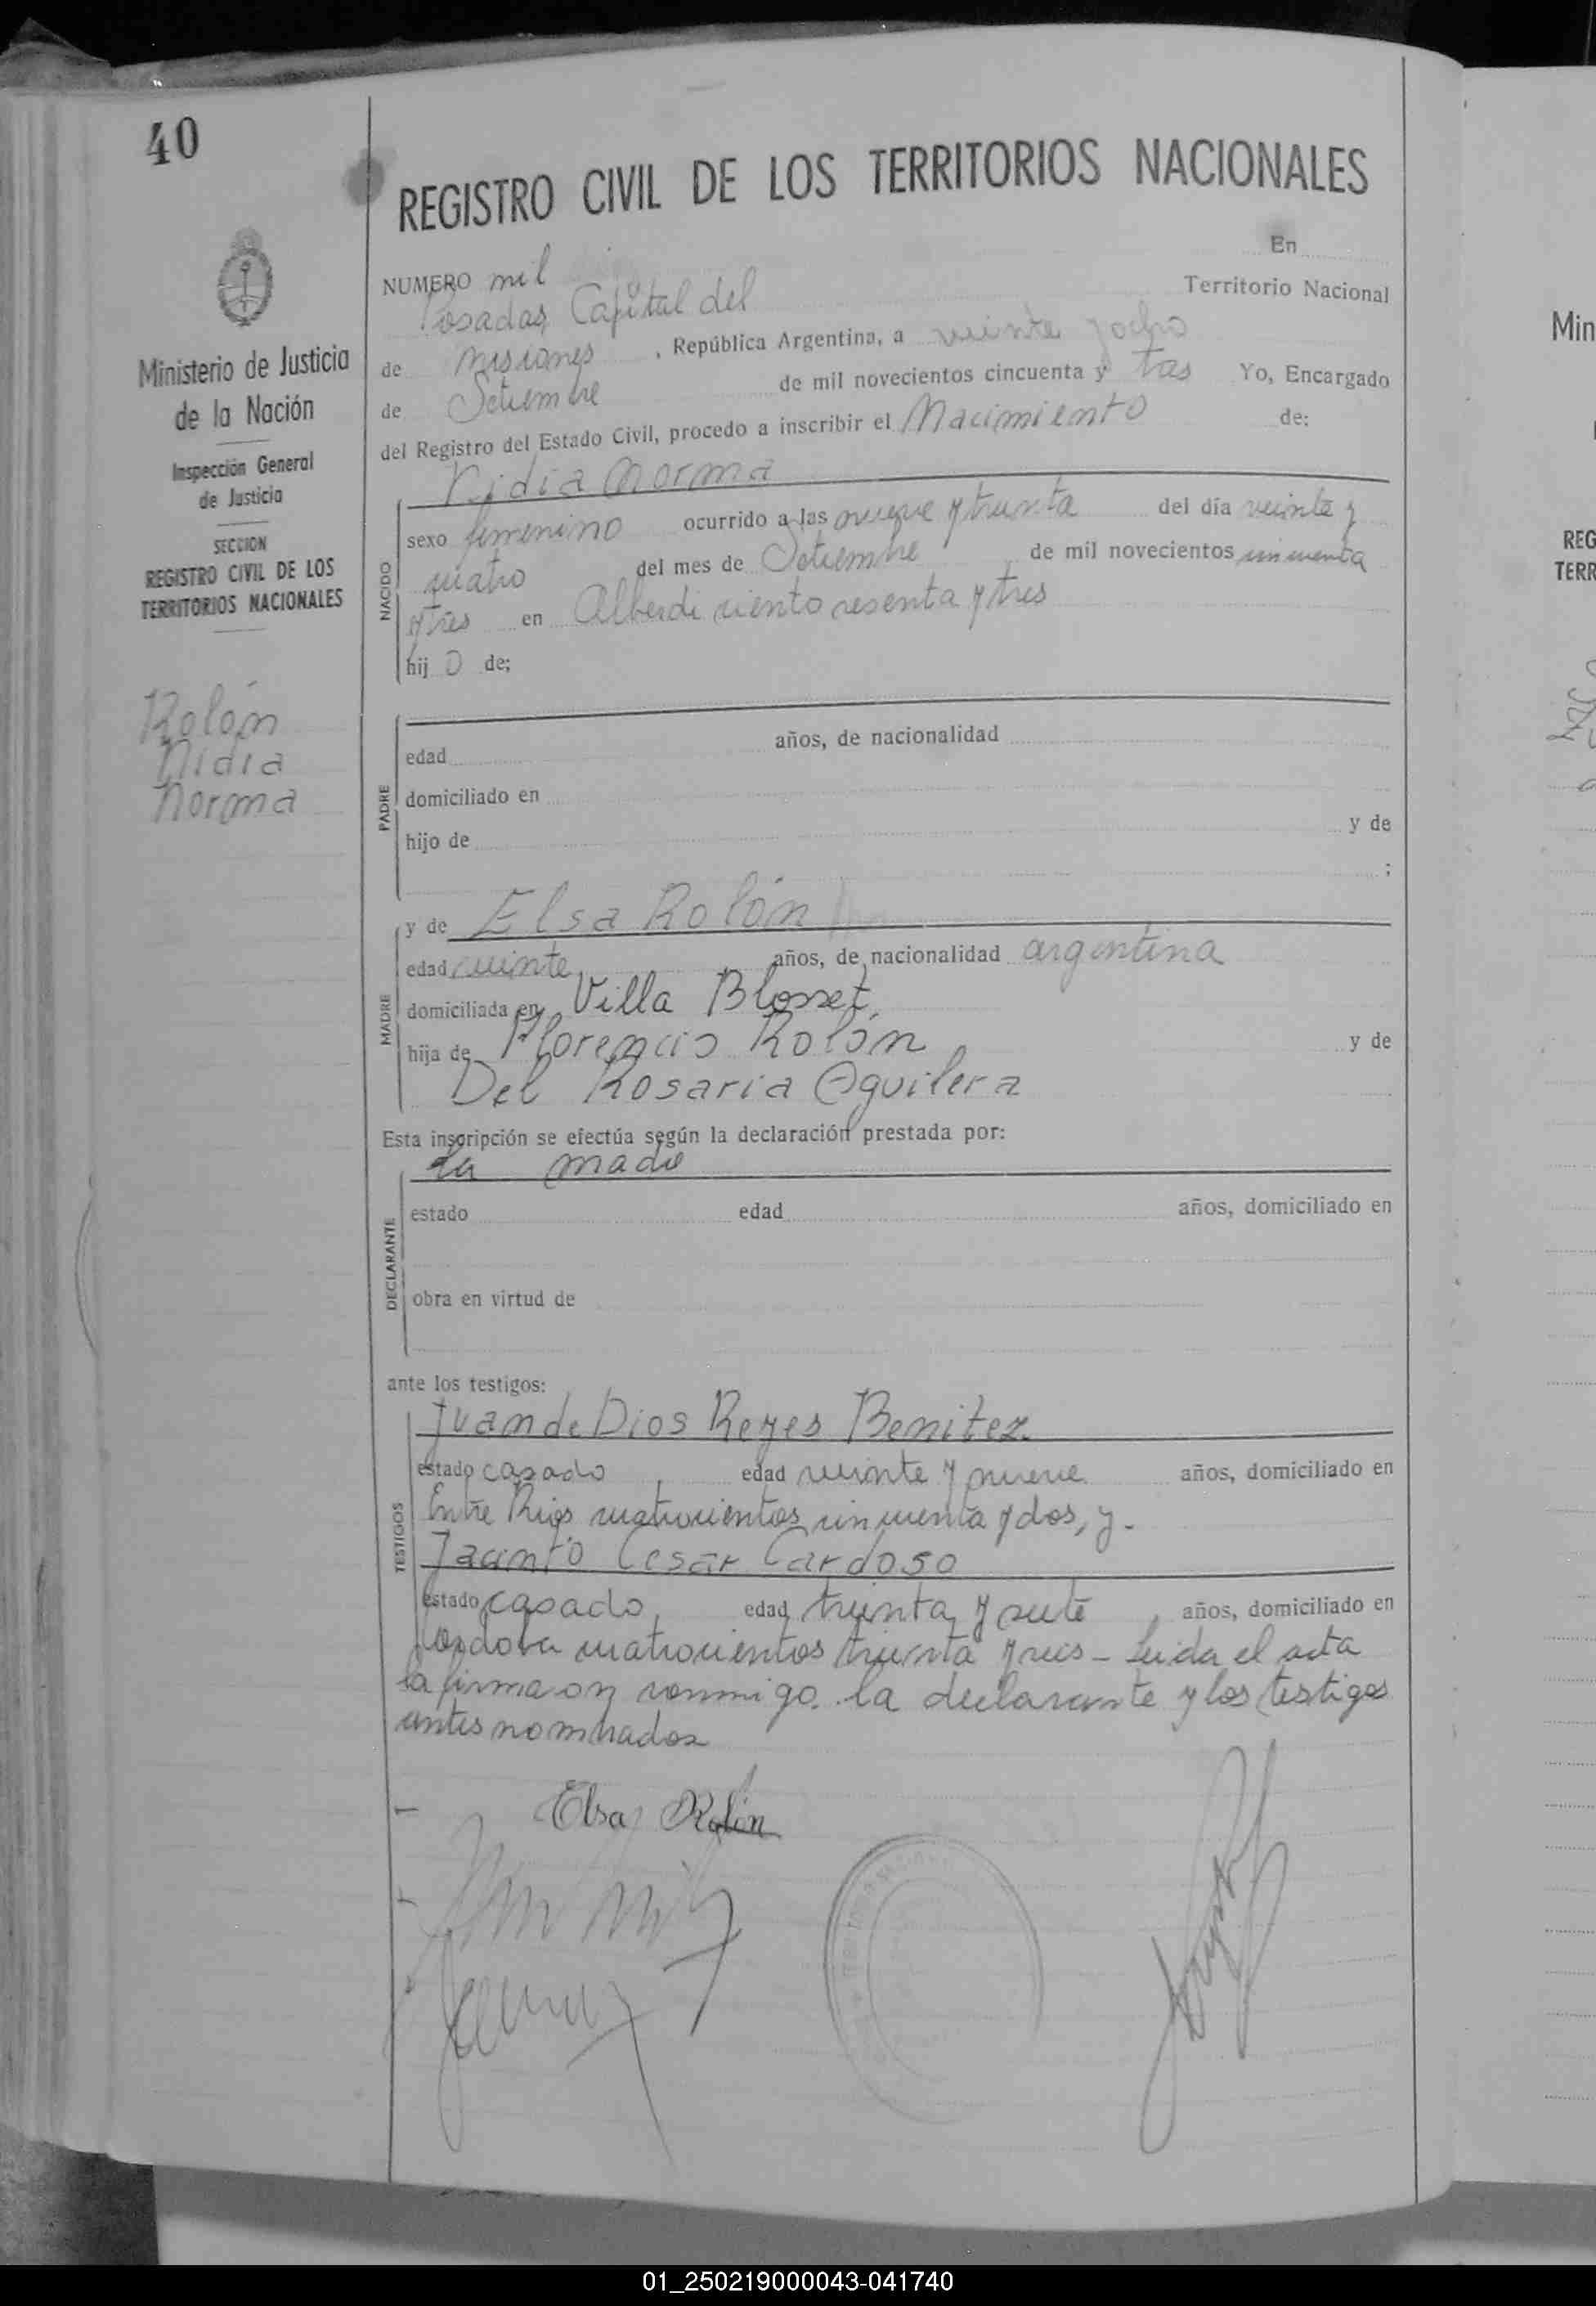 40
REGISTRO CIVIL DE LOS TERRITORIOS NACIONALES
Ministerio de Justicia
de la Nación
Inspección General
de Justicia
SECCION
REGISTRO CIVIL DE LOS
TERRITORIOS NACIONALES
Rolón
Nidia
Norma
NUMERO mil En
Posadas, Capital del Territorio Nacional
de Misiones , República Argentina, a veinte y ocho
de Setiembre de mil novecientos cincuenta y tres Yo, Encargado
del Registro del Estado Civil, procedo a inscribir el Nacimiento de:
NACIDO
Nidia Norma
sexo femenino ocurrido a las nueve y treinta del día veinte y
cuatro del mes de Setiembre de mil novecientos cincuenta
y tres en Alberdi ciento sesenta y tres
hij o de;
PADRE
edad años, de nacionalidad
domiciliado en
hijo de y de
;
MADRE
y de Elsa Rolón
edad veinte, años, de nacionalidad argentina
domiciliada en Villa Blosset,
hija de Florencio Rolón y de
Del Rosaria Aguilera
Esta inscripción se efectúa según la declaración prestada por:
DECLARANTE
la madre
estado edad años, domiciliado en
obra en virtud de
ante los testigos:
TESTIGOS
Juan de Dios Reyes Benitez
estado casado, edad veinte y nueve años, domiciliado en
Entre Rios cuatrocientos cincuenta y dos, y.
Jacinto Cesar Cardoso
estado casado, edad treinta y siete, años, domiciliado en
Cordova cuatrocientos treinta y seis - Leida el acta
la firmaon conmigo. la declarante y los testigos
antes nombrados
Elsa Rolón
Min
REG
TERR